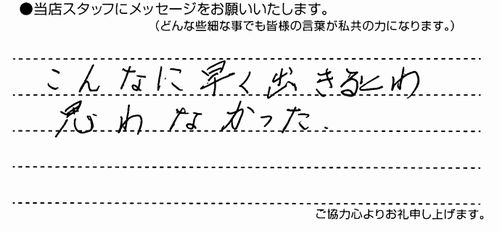 ●当店スタッフにメッセージをお願いいたします。
（どんな些細な事でも皆様の言葉が私共の力になります。）
こんなに早く出きるとわ
思わなかった.
ご協力心よりお礼申し上げます。